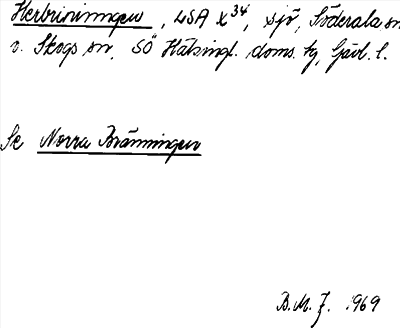 Herbrinningen, LSA X 34, sjö, Söderala sn
o. Skogs sn, SÖ Hälsingl. doms. tg, Gävl. l.
Se Norra Bränningen
B.M.J. 1969